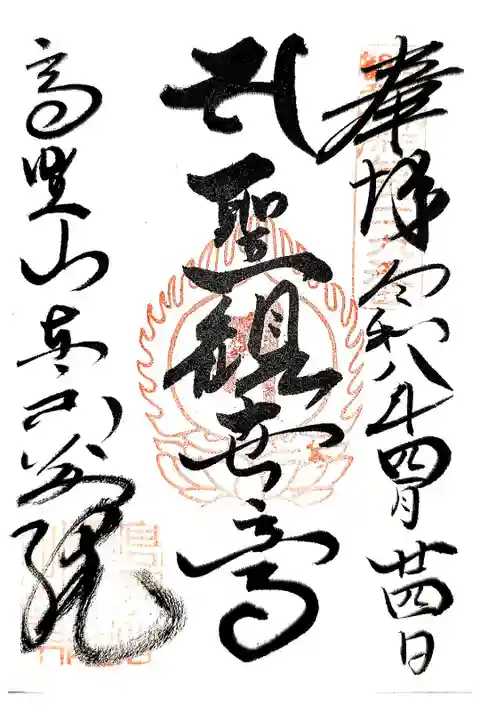 奉拝 令和八年四月廿四日
聖観世音
高野山東京別院